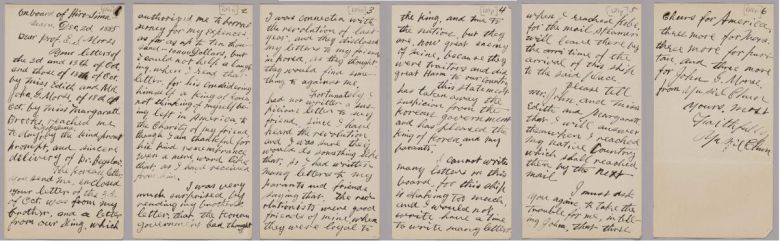 1
Onboard of Hiro-Sima
Dec. 2d 1885
Dear Prof. E. S. Morse
Your letters of
the 3d and 13th of Oct.
and those of 18th of Oct.
by Miss Edith, and Md.
John G. Morse, of 18th of
Oct. by Miss Margarett
Brooks, reached me
to day by the kind
prompt, and sincere
delivery of Dr. Bigelow.
The Korean letter
you send me, enclosed
your letter of the 3d
of Oct. was from my
brother, and a letter
from our King, which
2
authorized me to borrow
money for my expences,
as far as up to ten thou-
sand dollars, but
I could not help a laugh-
ing when I read that
letter, for his considering
himself a King at home
not thinking of myself to be
left in America to
the charity of my friend,
though I am thankful for
his kind remembrance
even a mere word like
that, so I had received
from him.
I was very
much surprised by
reading my brother's
letter, that the Korean
government had thought
3
I was connected with
the revolution of last
year, and they hindered
my letters to my friend
in Korea, as they thought
they would find some-
thing to against me.
Fortunately I
had not written a sus-
picious letter to my
friend, since I have
heard the revolution
and I was sure they
would do something like
that, so I had written
many letters to my
parents and friends
saying that. The rev-
olutionists were good
friends of mine when
they were loyal to
4
the King, and true to
the nation, but they
are now great enemy
of mine, because they
were traitors and did
great harm to our country.
this statement
has taken away the
suspicion from the
Korean government
and has pleased the
King of Korea, and my
parents.
I cannot write
many letters on this
board for this ship
is shaking too much,
and I would not
have a time
to write many letters
5
when I reached Kobe,
for the mail steamer
will leave there by
the time of the
arrival of this ship
to the said place
Please tell
Mr. John and Miss
Edith and Margarett
that I will answer
themselves I reached
my native Country
which shall reached
them by the next
mail
I must ask
you again to take the
trouble for me, in tell-
ing John, that three
6
Cheers for America,
three more for yours,
three more for
and three more
for John G. Morse,
from Yu Kil Chun
Yours, Most
Faithfully
Yu Kil Chun